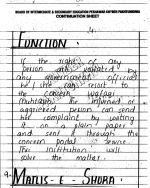 BOARD OF INTERMEDIATE & SECONDARY EDUCATION
CONTINUATION SHEET
FUNCTION :
if the right of any
person are violated by
any government official
he / she can resort to
the concern wafaqi
muhtasib. The informed or
aggrieved person can send
his complaint by writing
it on a plain paper
and sent it through the
concern postal service.
The institution will
solve the matter.
MAJLIS - E - SHURA :